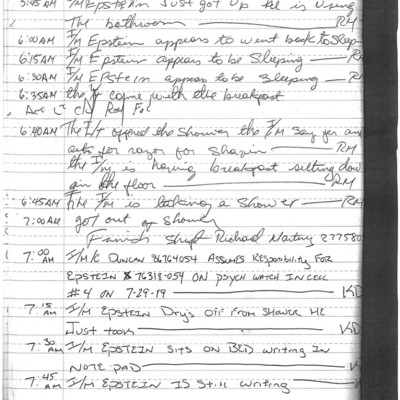 5:45 AM I/M Epstein Just got up he is using
The bathroom RM
6:00 AM I/M Epstein appears to went back to sleep
6:15 AM I/M Epstein appears to be Sleeping R
6:30 AM I/M EPStein appears to be sleeping R
6:35 AM the Lt came with the breakfast
6:40 AM The Lt offered the shower the I/M say yes and
ask for razor for Shavin RM
the I/M is having breakfast sitting dow
on the floor RM
6:45 AM The I/M is taking a Shower RM
7:00 AM got out of Shower
Finish Shift Richard 277580
7:00 AM I/M K DUNCAN 86764054 ASSUMES RESPONSIBILITY FOR
EPSTEIN 76318-054 ON PSYCH WATCH IN CELL
#4 ON 7-29-19 KD
7:15 AM I/M EPSTEIN Dry's OFF FROM SHOWER HE
JUST TOOK KD
7:30 AM I/M EPSTEIN SITS ON BED WRITING IN
NOTE PAD K
7:45 AM I/M EPSTEIN IS STILL WRITING K